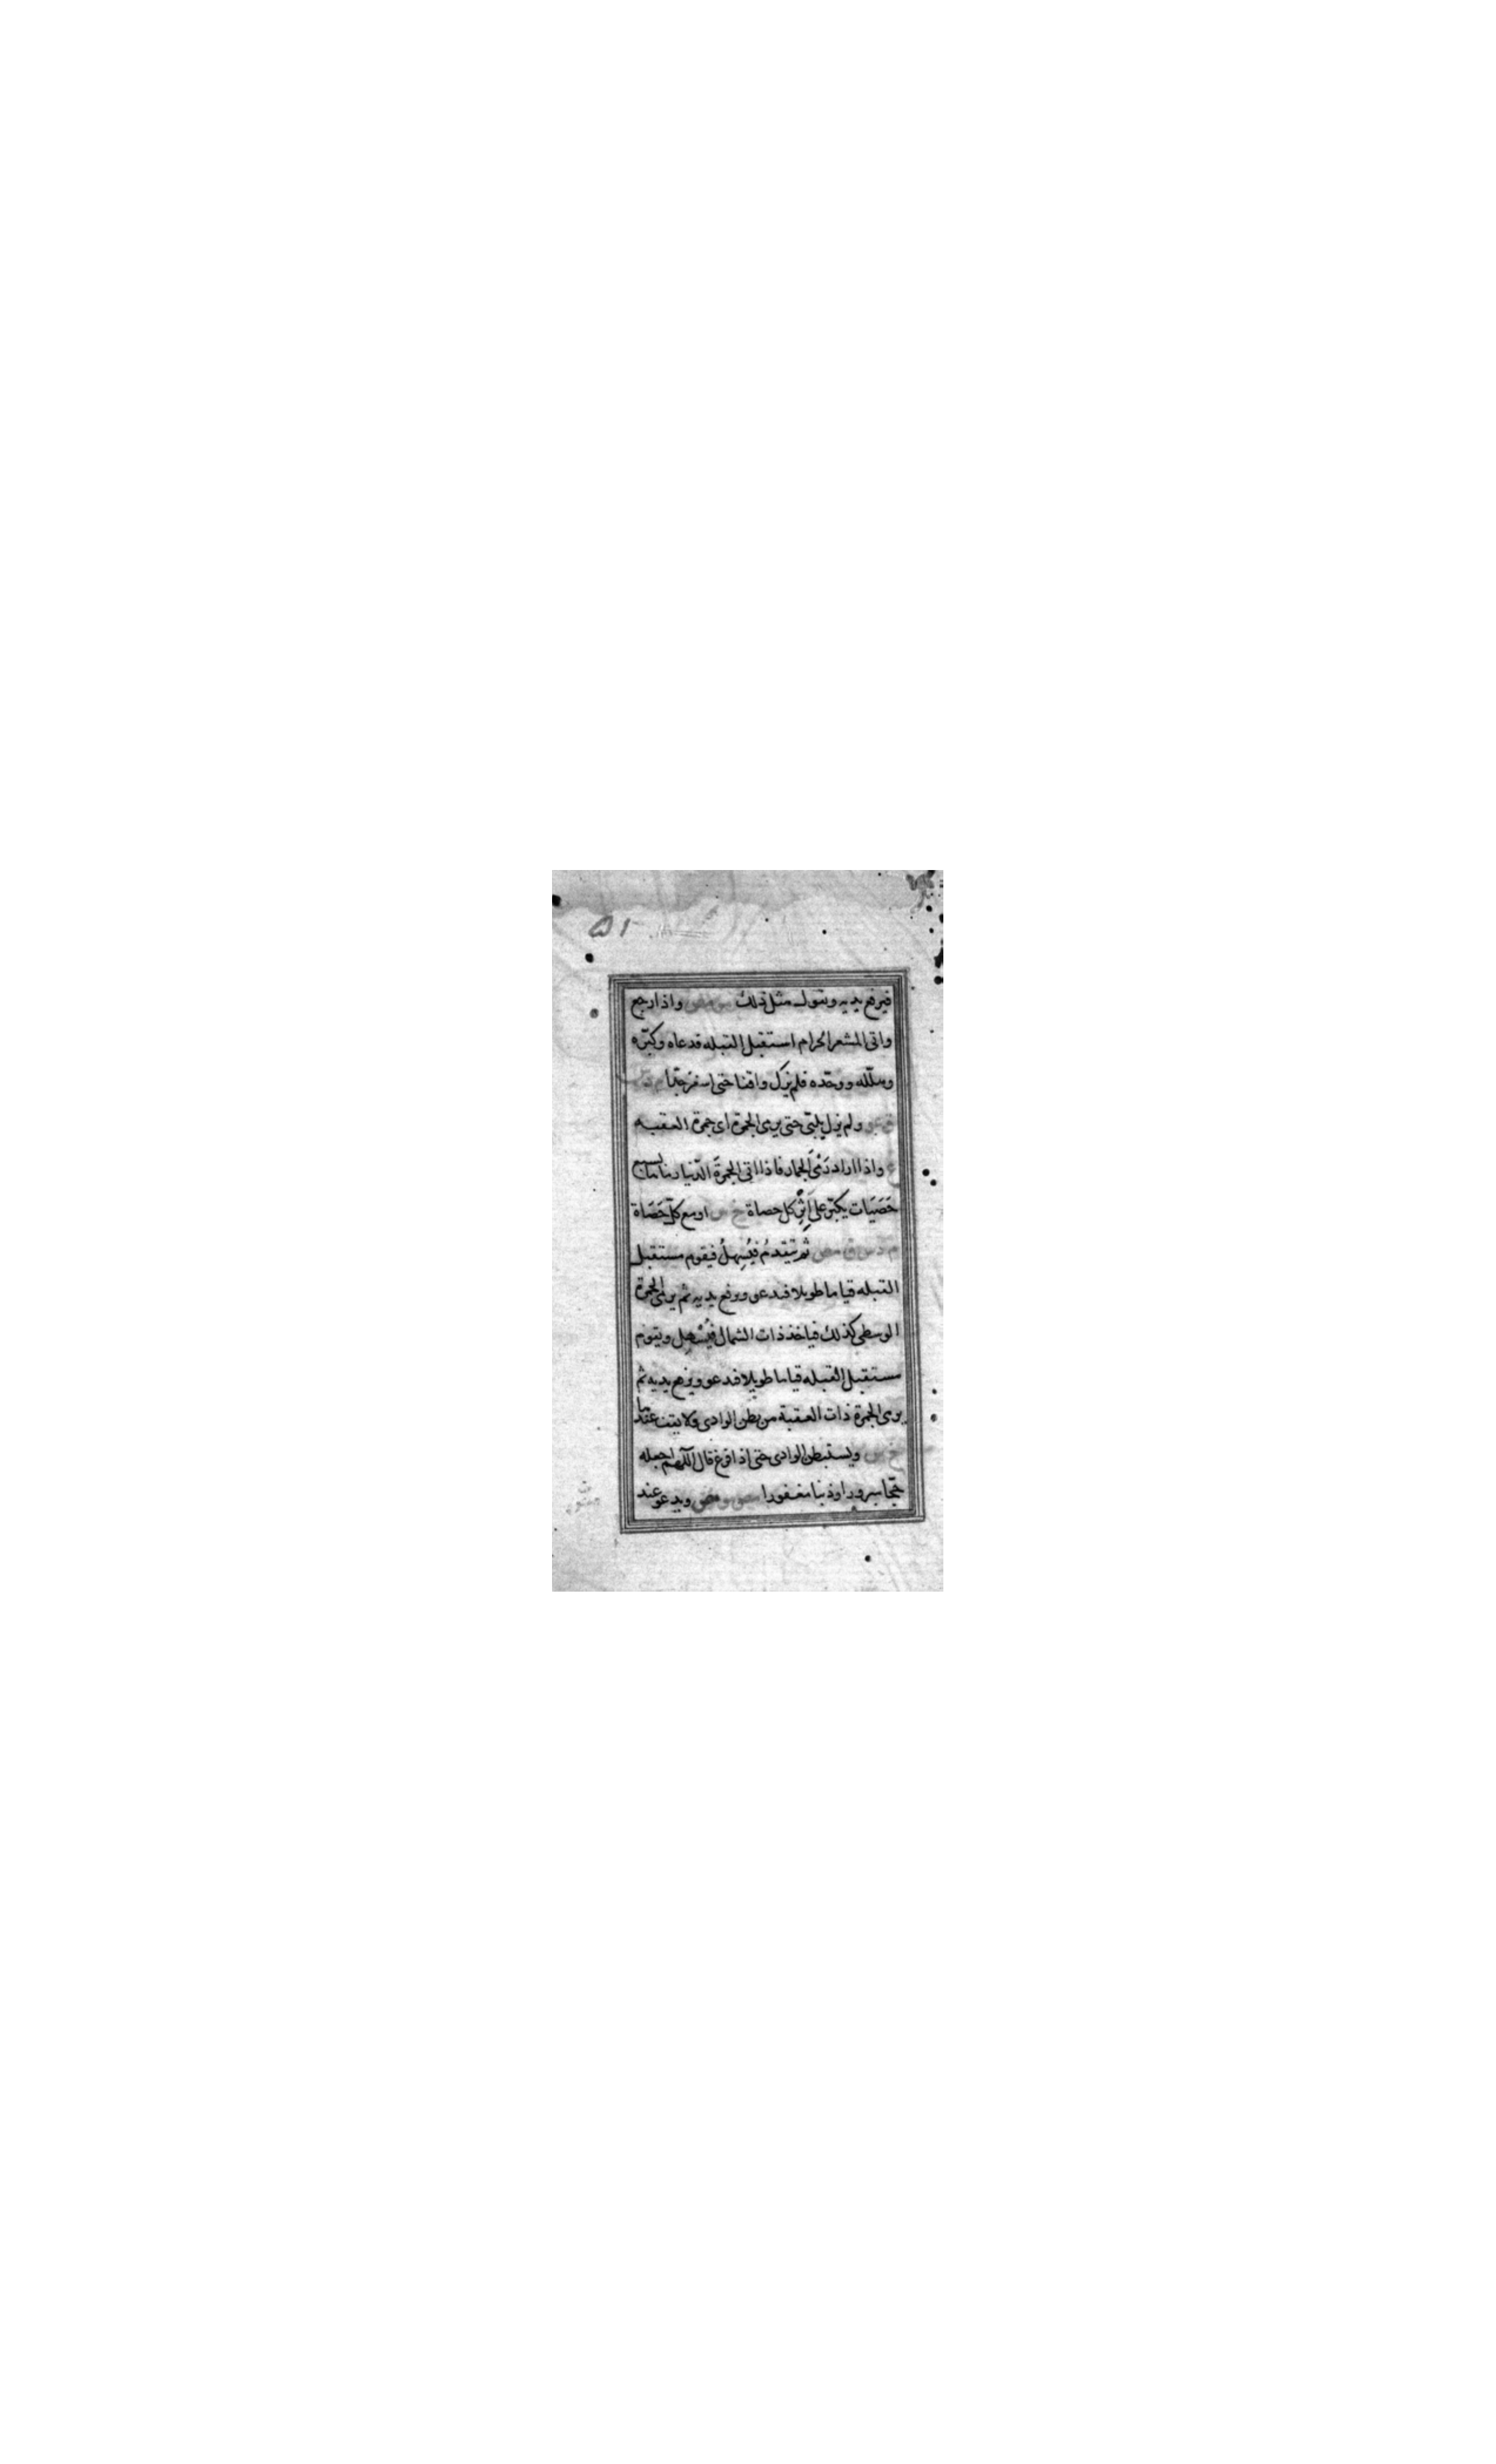 ٥١
فيرفع يديه ويقول مثل ذلك مو مص واذا رجع
واتى المشعر الحرام استقبل القبله فدعاه وكبّره
وهلّله ووحّده فلم يزل واقفا حتى اسفر جدّا م د س
ق عو ولم يزل يلبّى حتى يرمى الجمرة اى جمرة العقبه
ع واذا اراد رَمْىَ الجمار فاذا اتى الجمرةَ الدّنيا رماها بسبع
حَصَيَات يكبّر على اَثَرِ كل حصاة خ س او مع كلّ حَصَاة
م د س ق مص ثم يتقدمُ فيُسهلُ فيقوم مستقبل
القبله قياما طويلا فيدعو ويرفع يديه ثم يرمى الجمرة
الوسطى كذلك فياخذ ذات الشمال فيُسْهِل ويقوم
مستقبل القبله قياما طويلا فيدعو ويرفع يديه ثم
يرمى الجمرة ذات العقبة من بطن الوادى ولا يقف عندها
خ س ويستبطن الوادى حتى اذا فرغ قال اللّهم اجعله
حَجّا مبرورا وذنبا مغفورا مص مو مص ويدعو عند